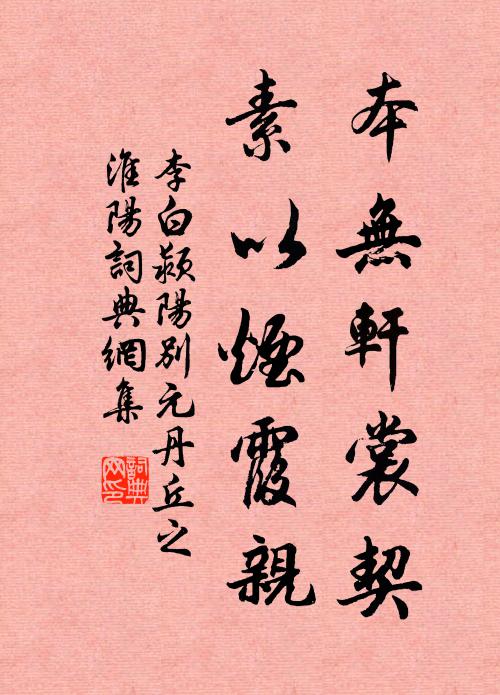 本無軒裳契
素以煙霞親
李白潁陽別元丹丘之
淮陽詞典網集
詞典网印